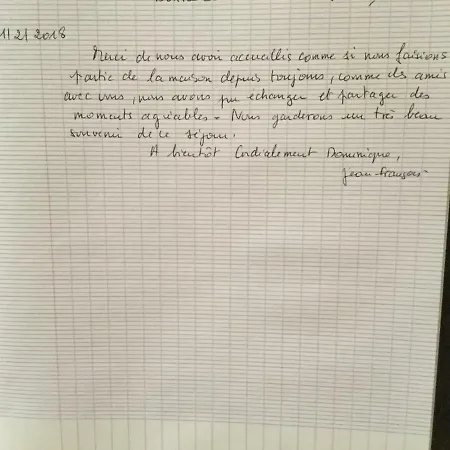 1/2/2018
Merci de nous avoir accueillis comme si nous faisions
partie de la maison depuis toujours, comme des amis
avec vous, nous avons pu echanger et partager des
moments agréables - Nous garderons un très beau
souvenir de ce séjour.
A bientôt Cordialement Dominique,
Jean-François